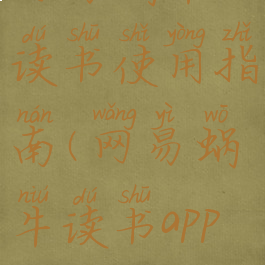 dú shū shǐ yòng zhǐ
读书使用指
nán wǎng yì wō
南(网易蜗
niú dú shū
牛读书app